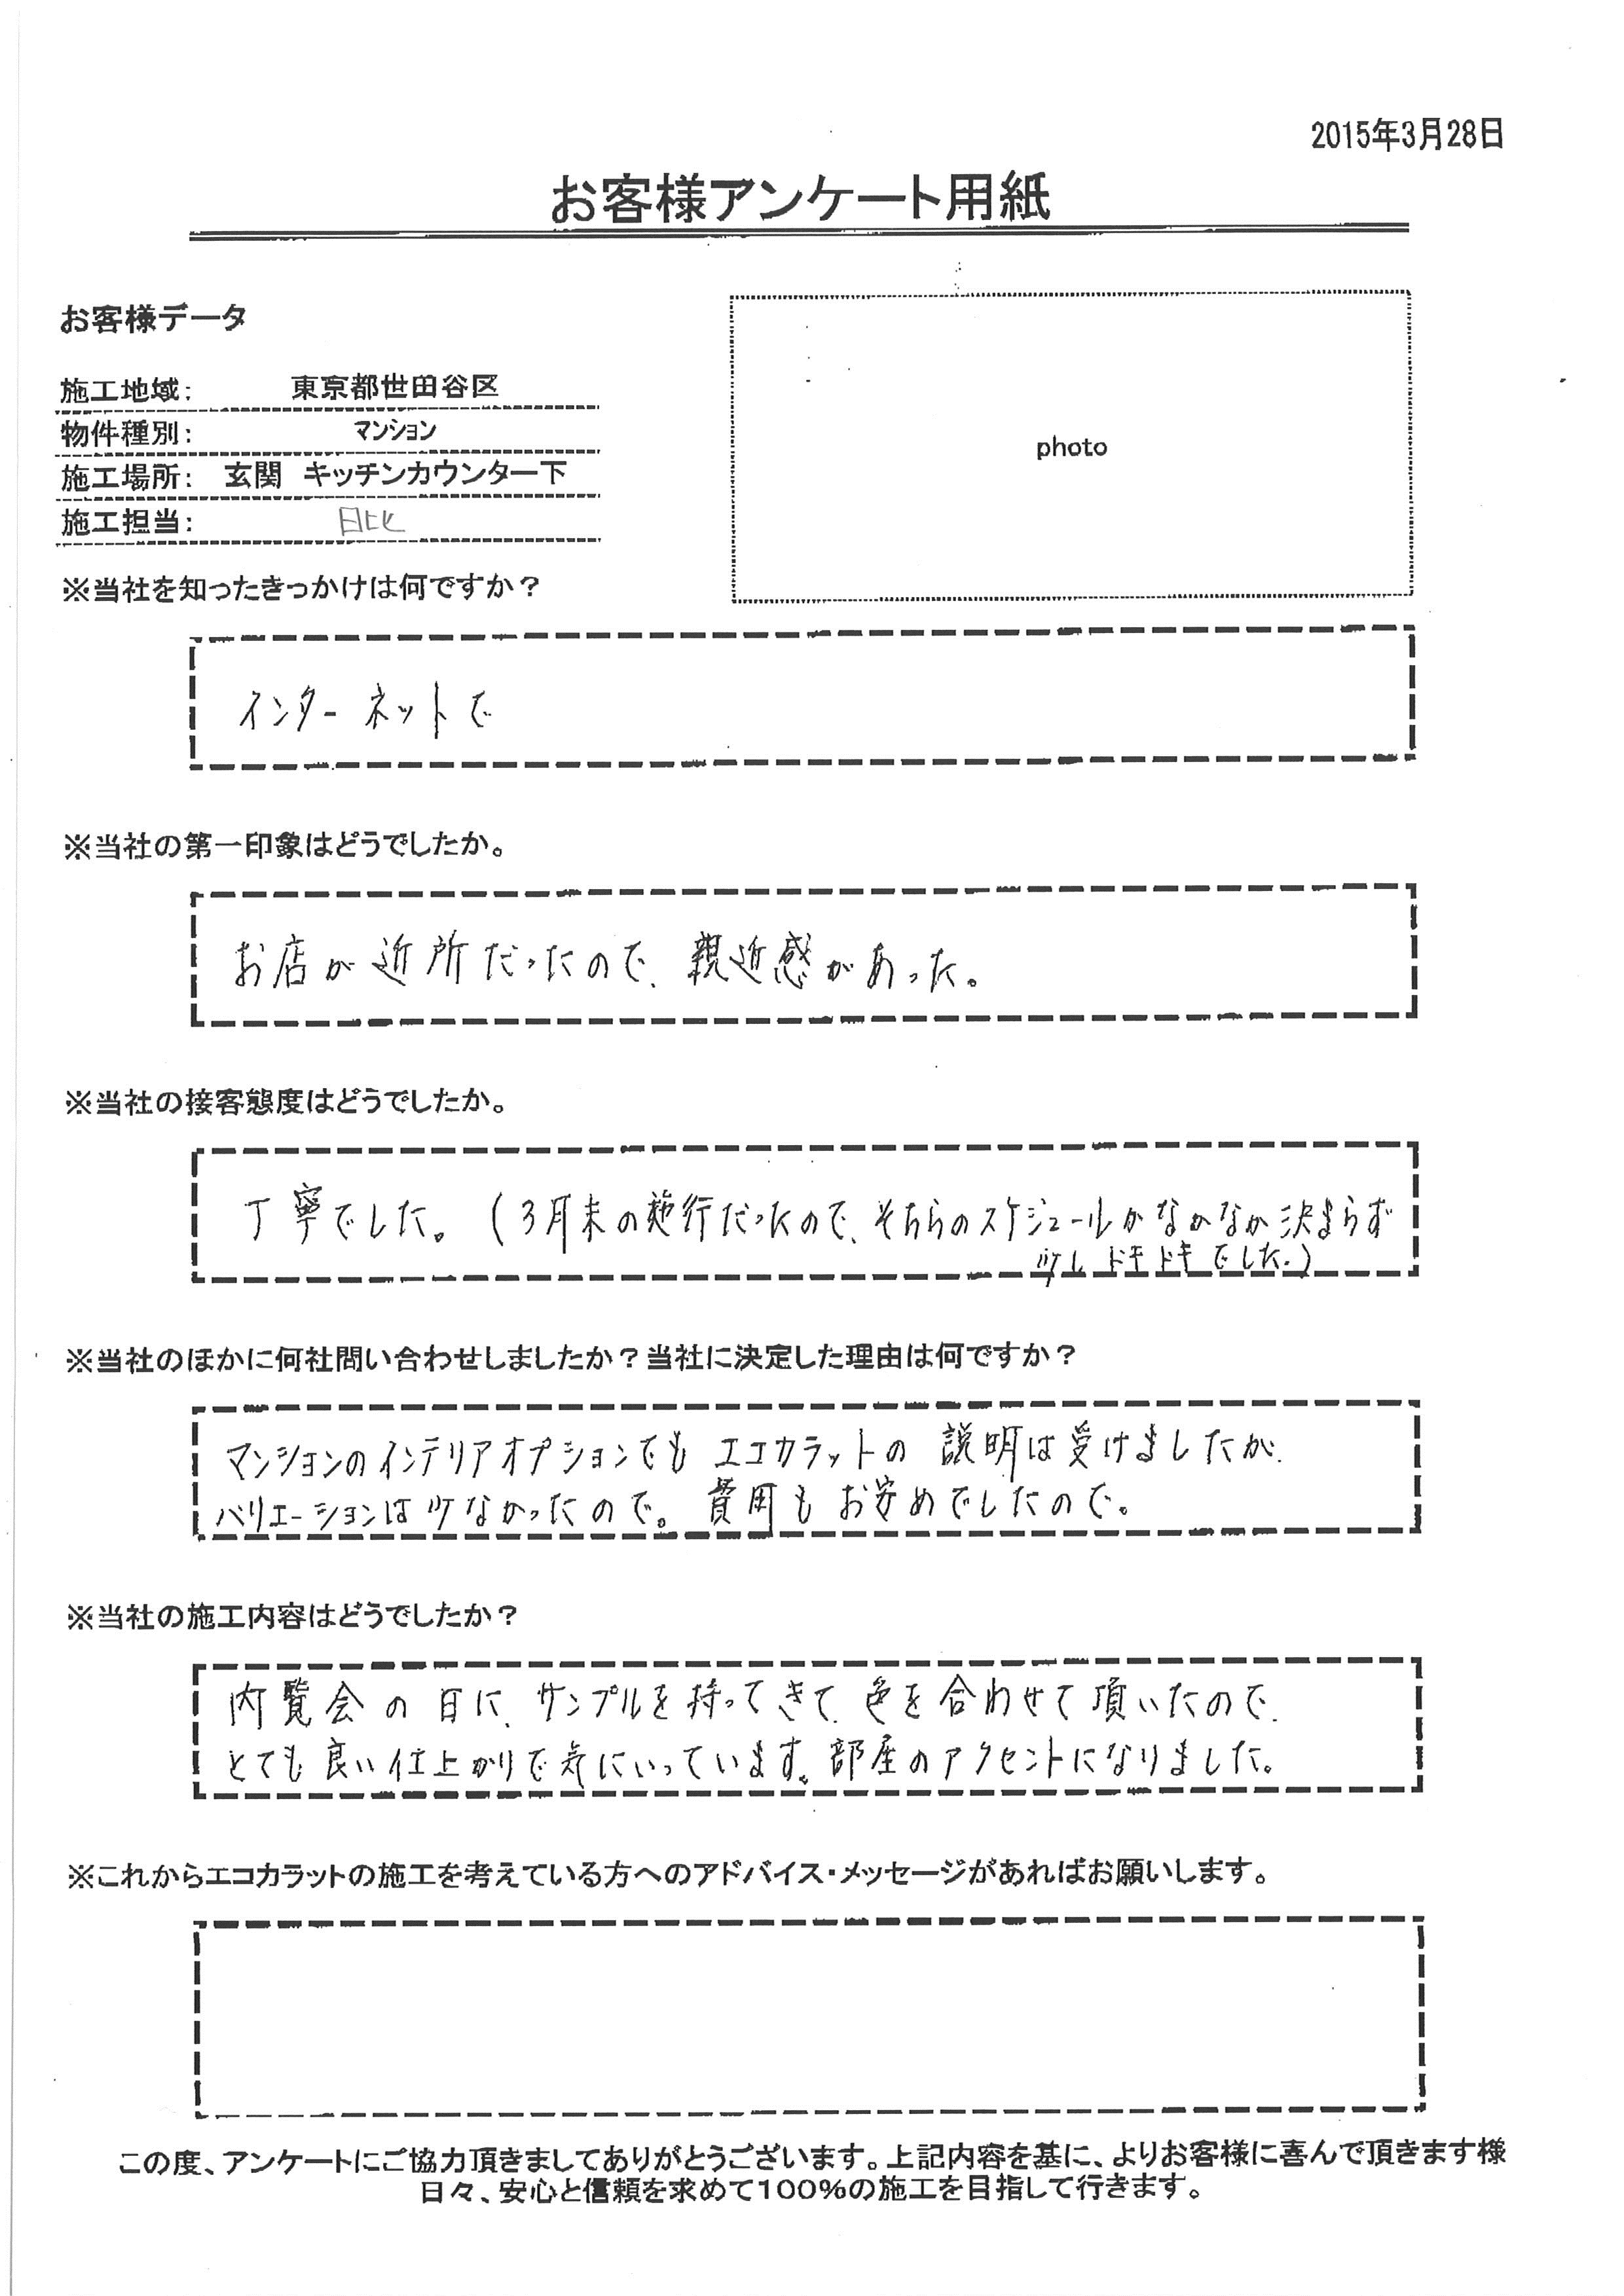 2015年3月28日
お客様アンケート用紙
お客様データ
施工地域： 東京都世田谷区
物件種別： マンション
施工場所： 玄関 キッチンカウンター下
施工担当： 日比
photo
※当社を知ったきっかけは何ですか？
インターネットで
※当社の第一印象はどうでしたか。
お店が近所だったので、親近感があった。
※当社の接客態度はどうでしたか。
丁寧でした。(3月末の施行だったので、そちらのスケジュールがなかなか決まらず
少しドキドキでした。)
※当社のほかに何社問い合わせしましたか？当社に決定した理由は何ですか？
マンションのインテリアオプションでもエコカラットの説明は受けましたが、
バリエーションは少なかったので。費用もお安めでしたので。
※当社の施工内容はどうでしたか？
内覧会の日に、サンプルを持ってきて、色を合わせて頂いたので、
とても良い仕上がりで気にいっています。部屋のアクセントになりました。
※これからエコカラットの施工を考えている方へのアドバイス・メッセージがあればお願いします。
この度、アンケートにご協力頂きましてありがとうございます。上記内容を基に、よりお客様に喜んで頂きます様
日々、安心と信頼を求めて100%の施工を目指して行きます。